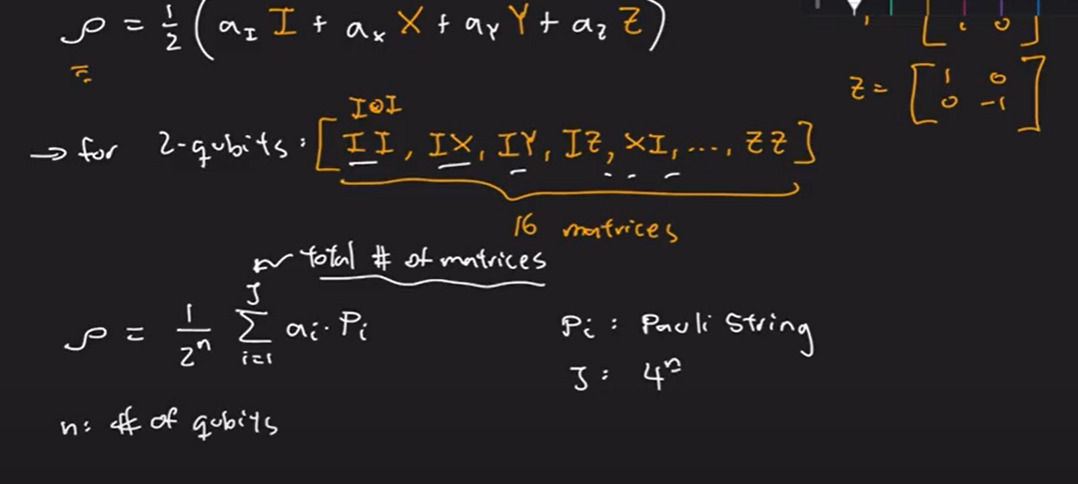 ρ = 1/2 (a_I I + a_x X + a_Y Y + a_z Z)
Z = [1 0
0 -1]
I⊗I
→ for 2-qubits: [II, IX, IY, IZ, XI, ..., ZZ]
16 matrices
total # of matrices
ρ = 1/2^n Σ_{i=1}^{J} a_i · P_i
P_i : Pauli String
J: 4^n
n: # of qubits